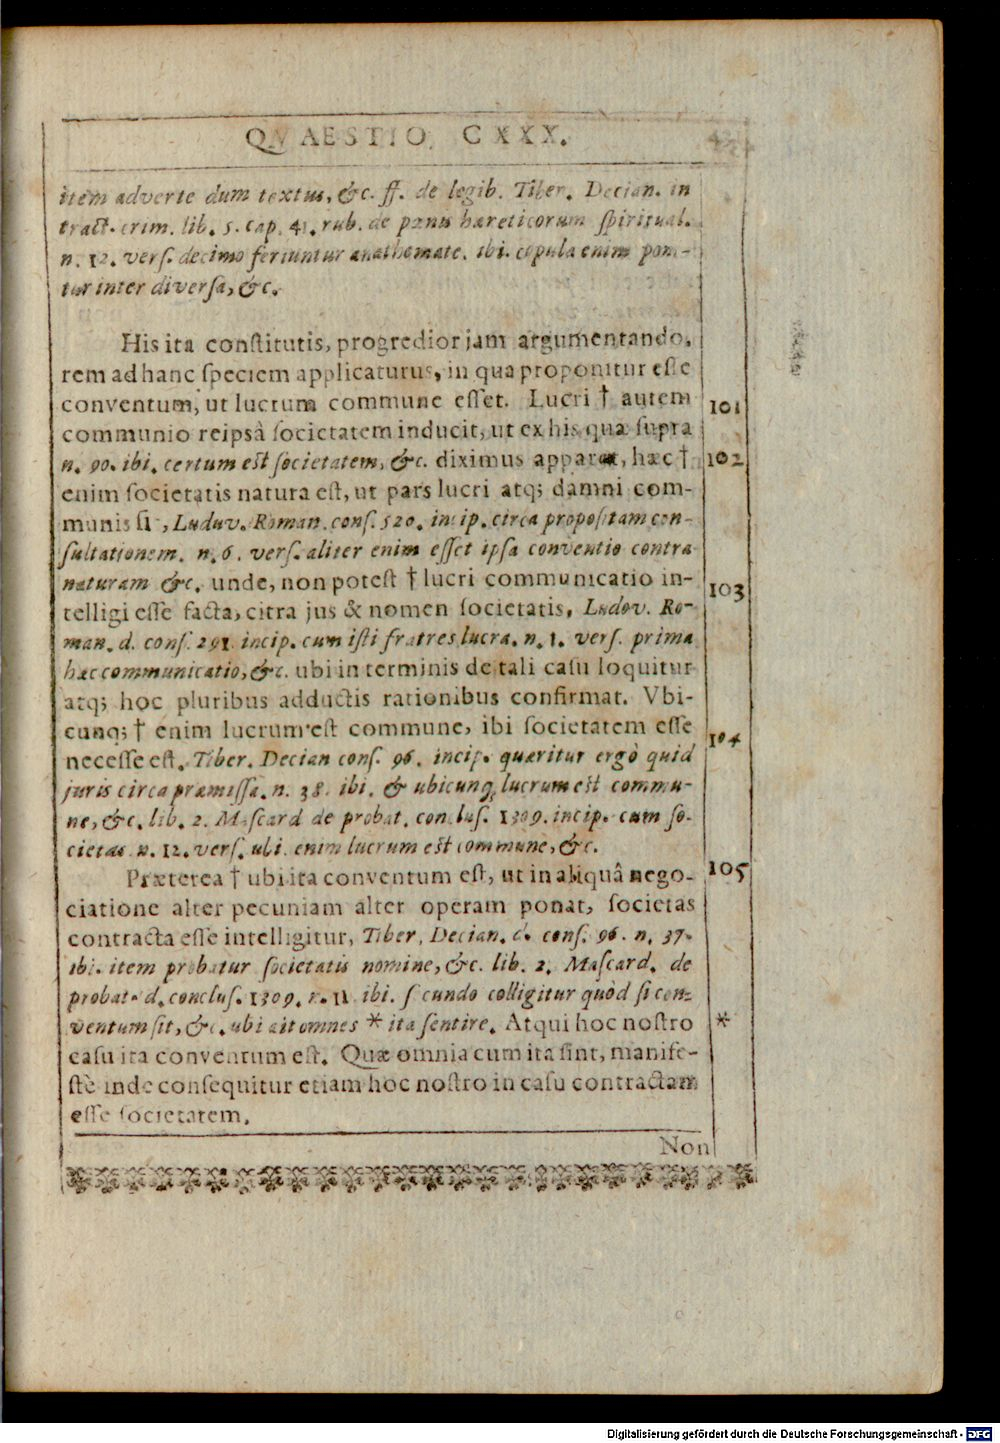 QVAESTIO CXXX.
item adverte dum textus, &c. ff. de legib. Tiber. Decian. in
tract. crim. lib. 5. cap. 41. rub. de pœnis hæreticorum spiritual.
n. 12. vers. decimo feriuntur anathemate. ibi. copula enim poni-
tur inter diversa, &c.
His ita constitutis, progredior jam argumentando,
rem ad hanc speciem applicaturus, in qua proponitur esse
conventum, ut lucrum commune esset. Lucri † autem 101
communio reipsâ societatem inducit, ut ex his quæ supra
n. 90. ibi. certum est societatem, &c. diximus apparet, hæc † 102
enim societatis natura est, ut pars lucri atq; damni com-
munis sit, Luduv. Roman. cons. 520. incip. circa propositam con-
sultationem. n. 6. vers. aliter enim esset ipsa conventio contra
naturam &c. unde, non potest † lucri communicatio in- 103
telligi esse facta, citra jus & nomen societatis, Ludov. Ro-
man. d. cons. 291. incip. cum isti fratres lucra. n. 1. vers. prima
hæc communicatio, &c. ubi in terminis de tali casu loquitur
atq; hoc pluribus adductis rationibus confirmat. Vbi-
cunq; † enim lucrum est commune, ibi societatem esse 104
necesse est. Tiber. Decian cons. 96. incip. quæritur ergò quid
juris circa præmissa. n. 38. ibi. & ubicunq; lucrum est commu-
ne, &c. lib. 2. Mascard de probat. conclus. 1309. incip. cum so-
cietas n. 12. vers. ubi enim lucrum est commune, &c.
Præterea † ubi ita conventum est, ut in aliquâ nego- 105
ciatione alter pecuniam alter operam ponat, societas
contracta esse intelligitur, Tiber. Decian. d. cons. 96. n. 37.
ibi. item probatur societatis nomine, &c. lib. 2. Mascard. de
probat. d. conclus. 1309. n. 11 ibi. secundo colligitur quòd si con-
ventum sit, &c. ubi ait omnes * ita sentire. Atqui hoc nostro *
casu ita conventum est. Quæ omnia cum ita sint, manife-
stè inde consequitur etiam hoc nostro in casu contractam
esse societatem.
Non
Digitalisierung gefördert durch die Deutsche Forschungsgemeinschaft - DFG